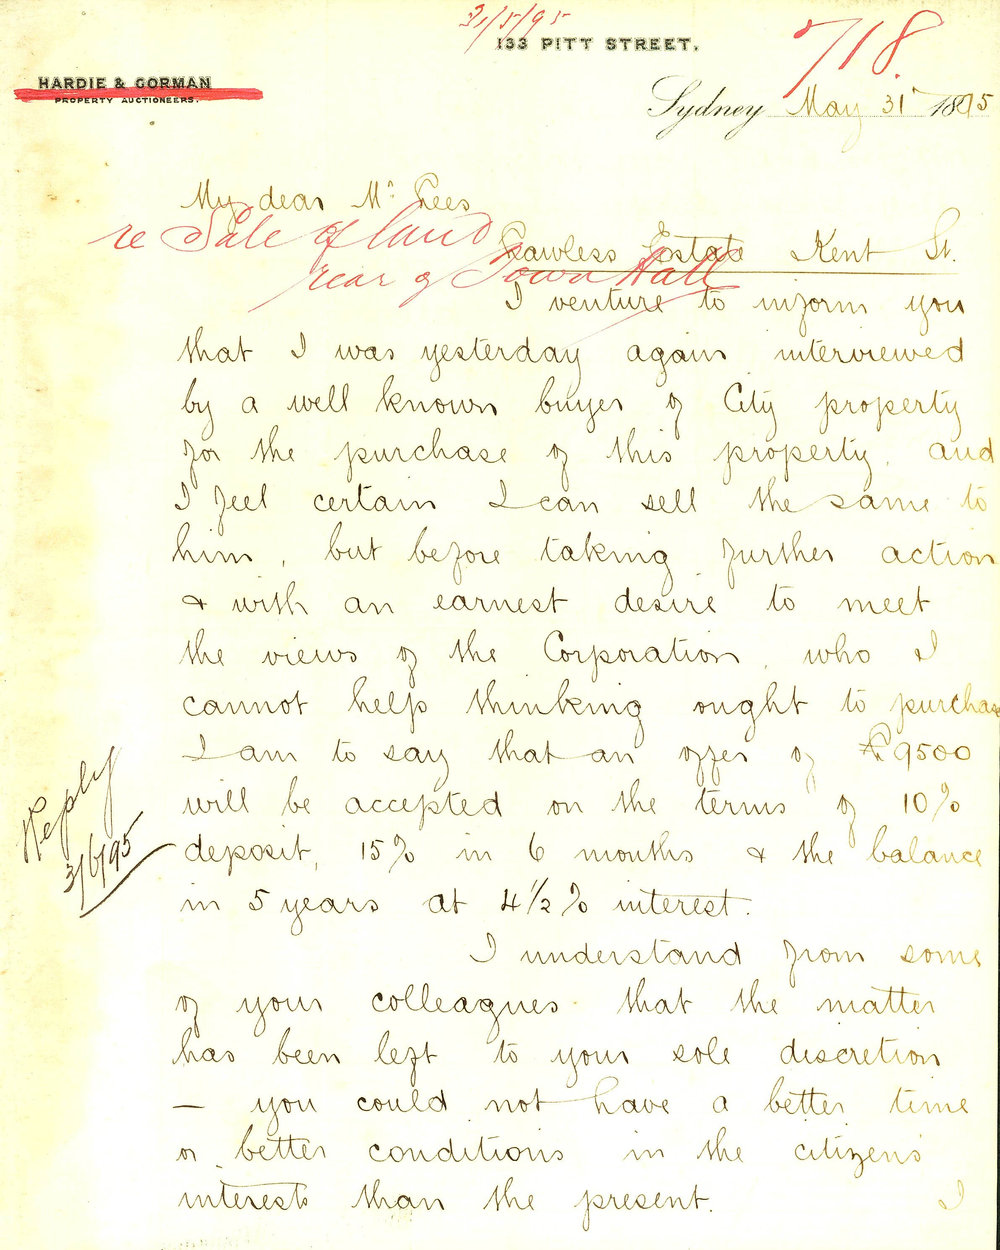 31/5/95
133 PITT STREET.
718.
HARDIE & GORMAN
PROPERTY AUCTIONEERS.
Sydney May 31 1895
My dear Mr Lees
re Sale of land
rear of Town Hall
Lawless Estate Kent St.
I venture to inform you
that I was yesterday again interviewed
by a well known buyer of City property
for the purchase of this property, and
I feel certain I can sell the same to
him, but before taking further action
& with an earnest desire to meet
the views of the Corporation, who I
cannot help thinking ought to purchase
I am to say that an offer of £9500
will be accepted on the terms of 10%
deposit, 15% in 6 months & the balance
in 5 years at 4 1/2 % interest.
Reply
3/6/95
I understand from some
of your colleagues that the matter
has been left to your sole discretion
— you could not have a better time
or better conditions in the citizens'
interests than the present. I